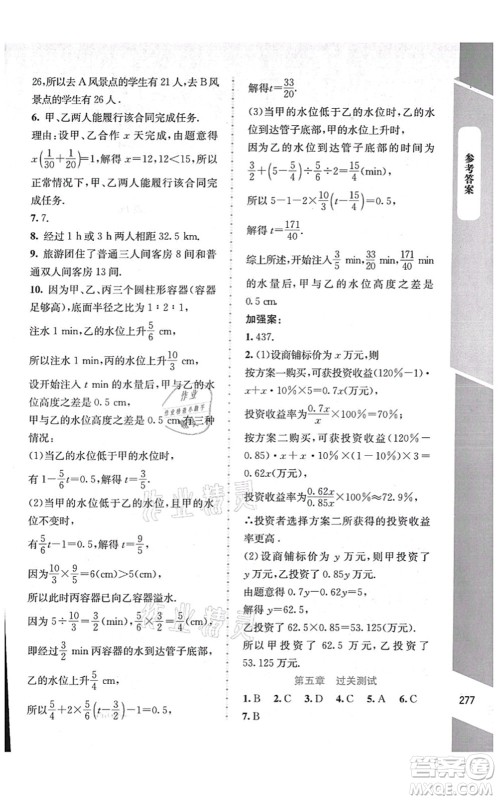 26,所以去 A 风景点的学生有 21 人,去 B 风
景点的学生有 26 人.
6. 甲、乙两人能履行该合同完成任务.
理由:设甲、乙合作 x 天完成,由题意得
x(1/30+1/20)=1,解得 x=12,12<15,所以
正常情况下,甲、乙两人能履行该合同完成
任务.
7. 7.
8. 经过 1 h 或 3 h 两人相距 32.5 km.
9. 旅游团住了普通三人间客房 8 间和普通
双人间客房 13 间.
10. 因为甲、乙、丙三个圆柱形容器(容器
足够高),底面半径之比为 1∶2∶1,
注水 1 min,乙的水位上升5/6 cm,
所以注水 1 min,丙的水位上升10/3 cm,
设开始注入 t min 的水量后,
甲与乙的水位高度之差是 0.5 cm 有三种
情况:
(1)当乙的水位低于甲的水位时,
有 1-5/6t=0.5,解得 t=3/5.
(2)当甲的水位低于乙的水位,且甲的水
位不变时,
5/6t-1=0.5,解得 t=9/5.
因为10/3×9/5=6(cm)>5 cm,
所以此时丙容器已向乙容器溢水.
因为 5÷10/3=3/2(min),5/6×3/2=5/4(cm),
即经过3/2 min 丙容器的水到达管子底部,
乙的水位上升5/4 cm,
所以5/4+2×5/6(t-3/2)-1=0.5,
解得 t=33/20.
(3)当甲的水位低于乙的水位时,乙的水
位到达管子底部,甲的水位上升时,
因为乙的水位到达管子底部的时间为
3/2+(5-5/4)÷5/6÷2=15/4(min),
所以 5-1-2×10/3(t-15/4)=0.5,
解得 t=171/40.
综上所述,开始注入3/5或33/20或171/40 min
的水量后,甲与乙的水位高度之差是
0.5 cm.
加强案:
1. 437.
2. (1)设商铺标价为 x 万元,则
按方案一购买,可获投资收益(120%-1)
·x+x·10%×5=0.7x(万元),
投资收益率为0.7x/x×100%=70%.
按方案二购买,可获投资收益(120%-
0.85)·x+x·10%×(1-10%)×3=
0.62x(万元),
投资收益率为0.62x/0.85x×100%≈72.9%,
∴投资者选择方案二所获得的投资收益
率更高.
(2)设商铺标价为 y 万元,则甲投资了 y
万元,乙投资了 0.85y 万元.
由题意得 0.7y-0.62y=5,
解得 y=62.5,
乙的投资是 62.5×0.85=53.125(万元).
所以甲投资了 62.5 万元,乙投资了
53.125 万元.
第五章 过关测试
1. B 2. C 3. C 4. C 5. A 6. C
7. B
参考答案
277
作业精灵
答案圈
MXQE.COM